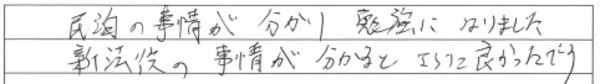 民泊の事情が分かり勉強になりました
新法後の事情が分かるとさらに良かったです